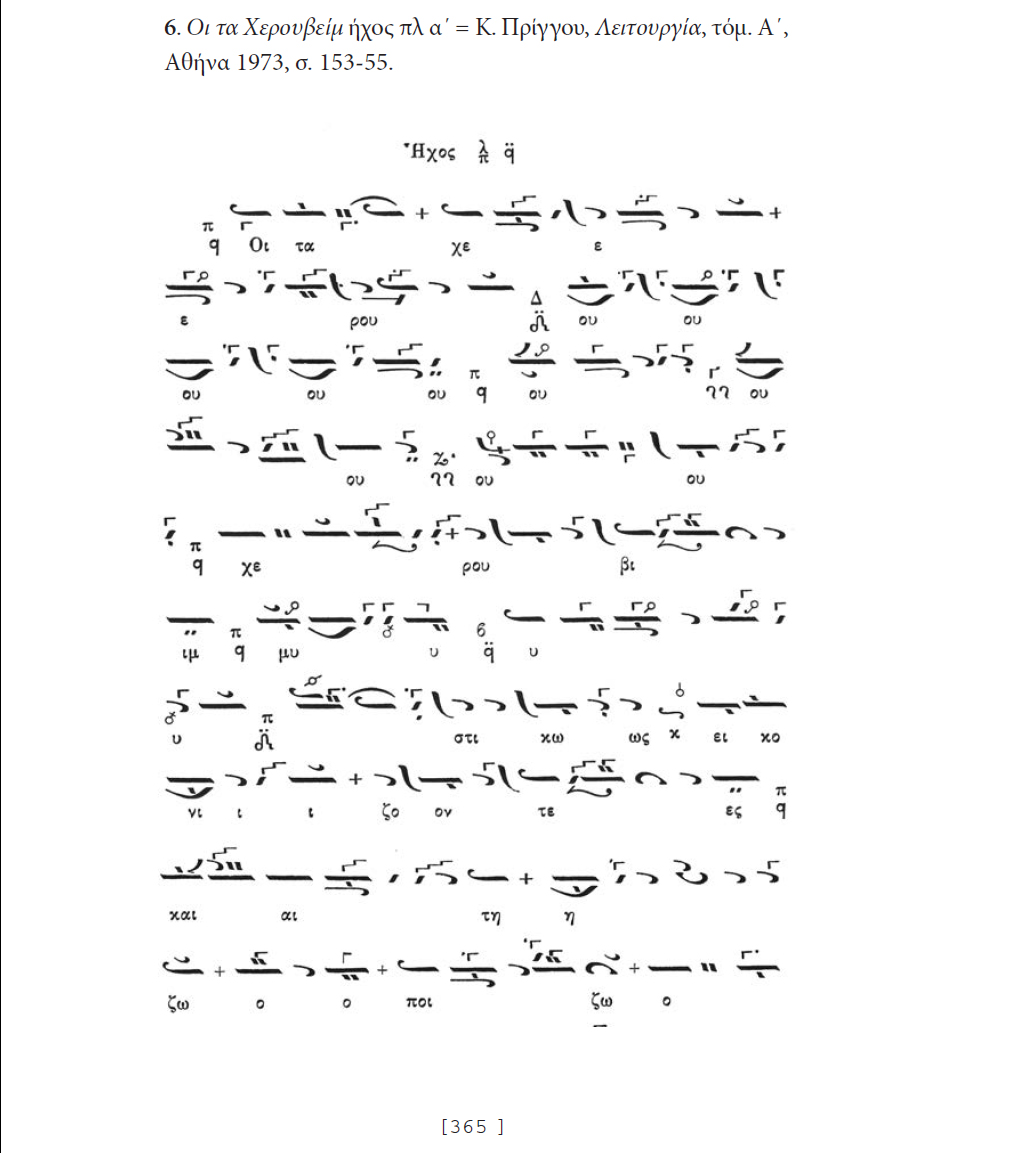 6. Οι τα Χερουβείμ ήχος πλ α΄ = Κ. Πρίγγου, Λειτουργία, τόμ. Α΄,
Αθήνα 1973, σ. 153-55.
Ἦχος
Οι τα χε ε
ε ρου Δ ου ου
ου ου ου π ου ου
ου ου ου
π χε ρου βι
ιμ π μυ υ υ
υ π στι κω ως κ ει κο
νι ι ι ζο ον τε ες π
και αι τη η
ζω ο ο ποι ζω ο
[365 ]